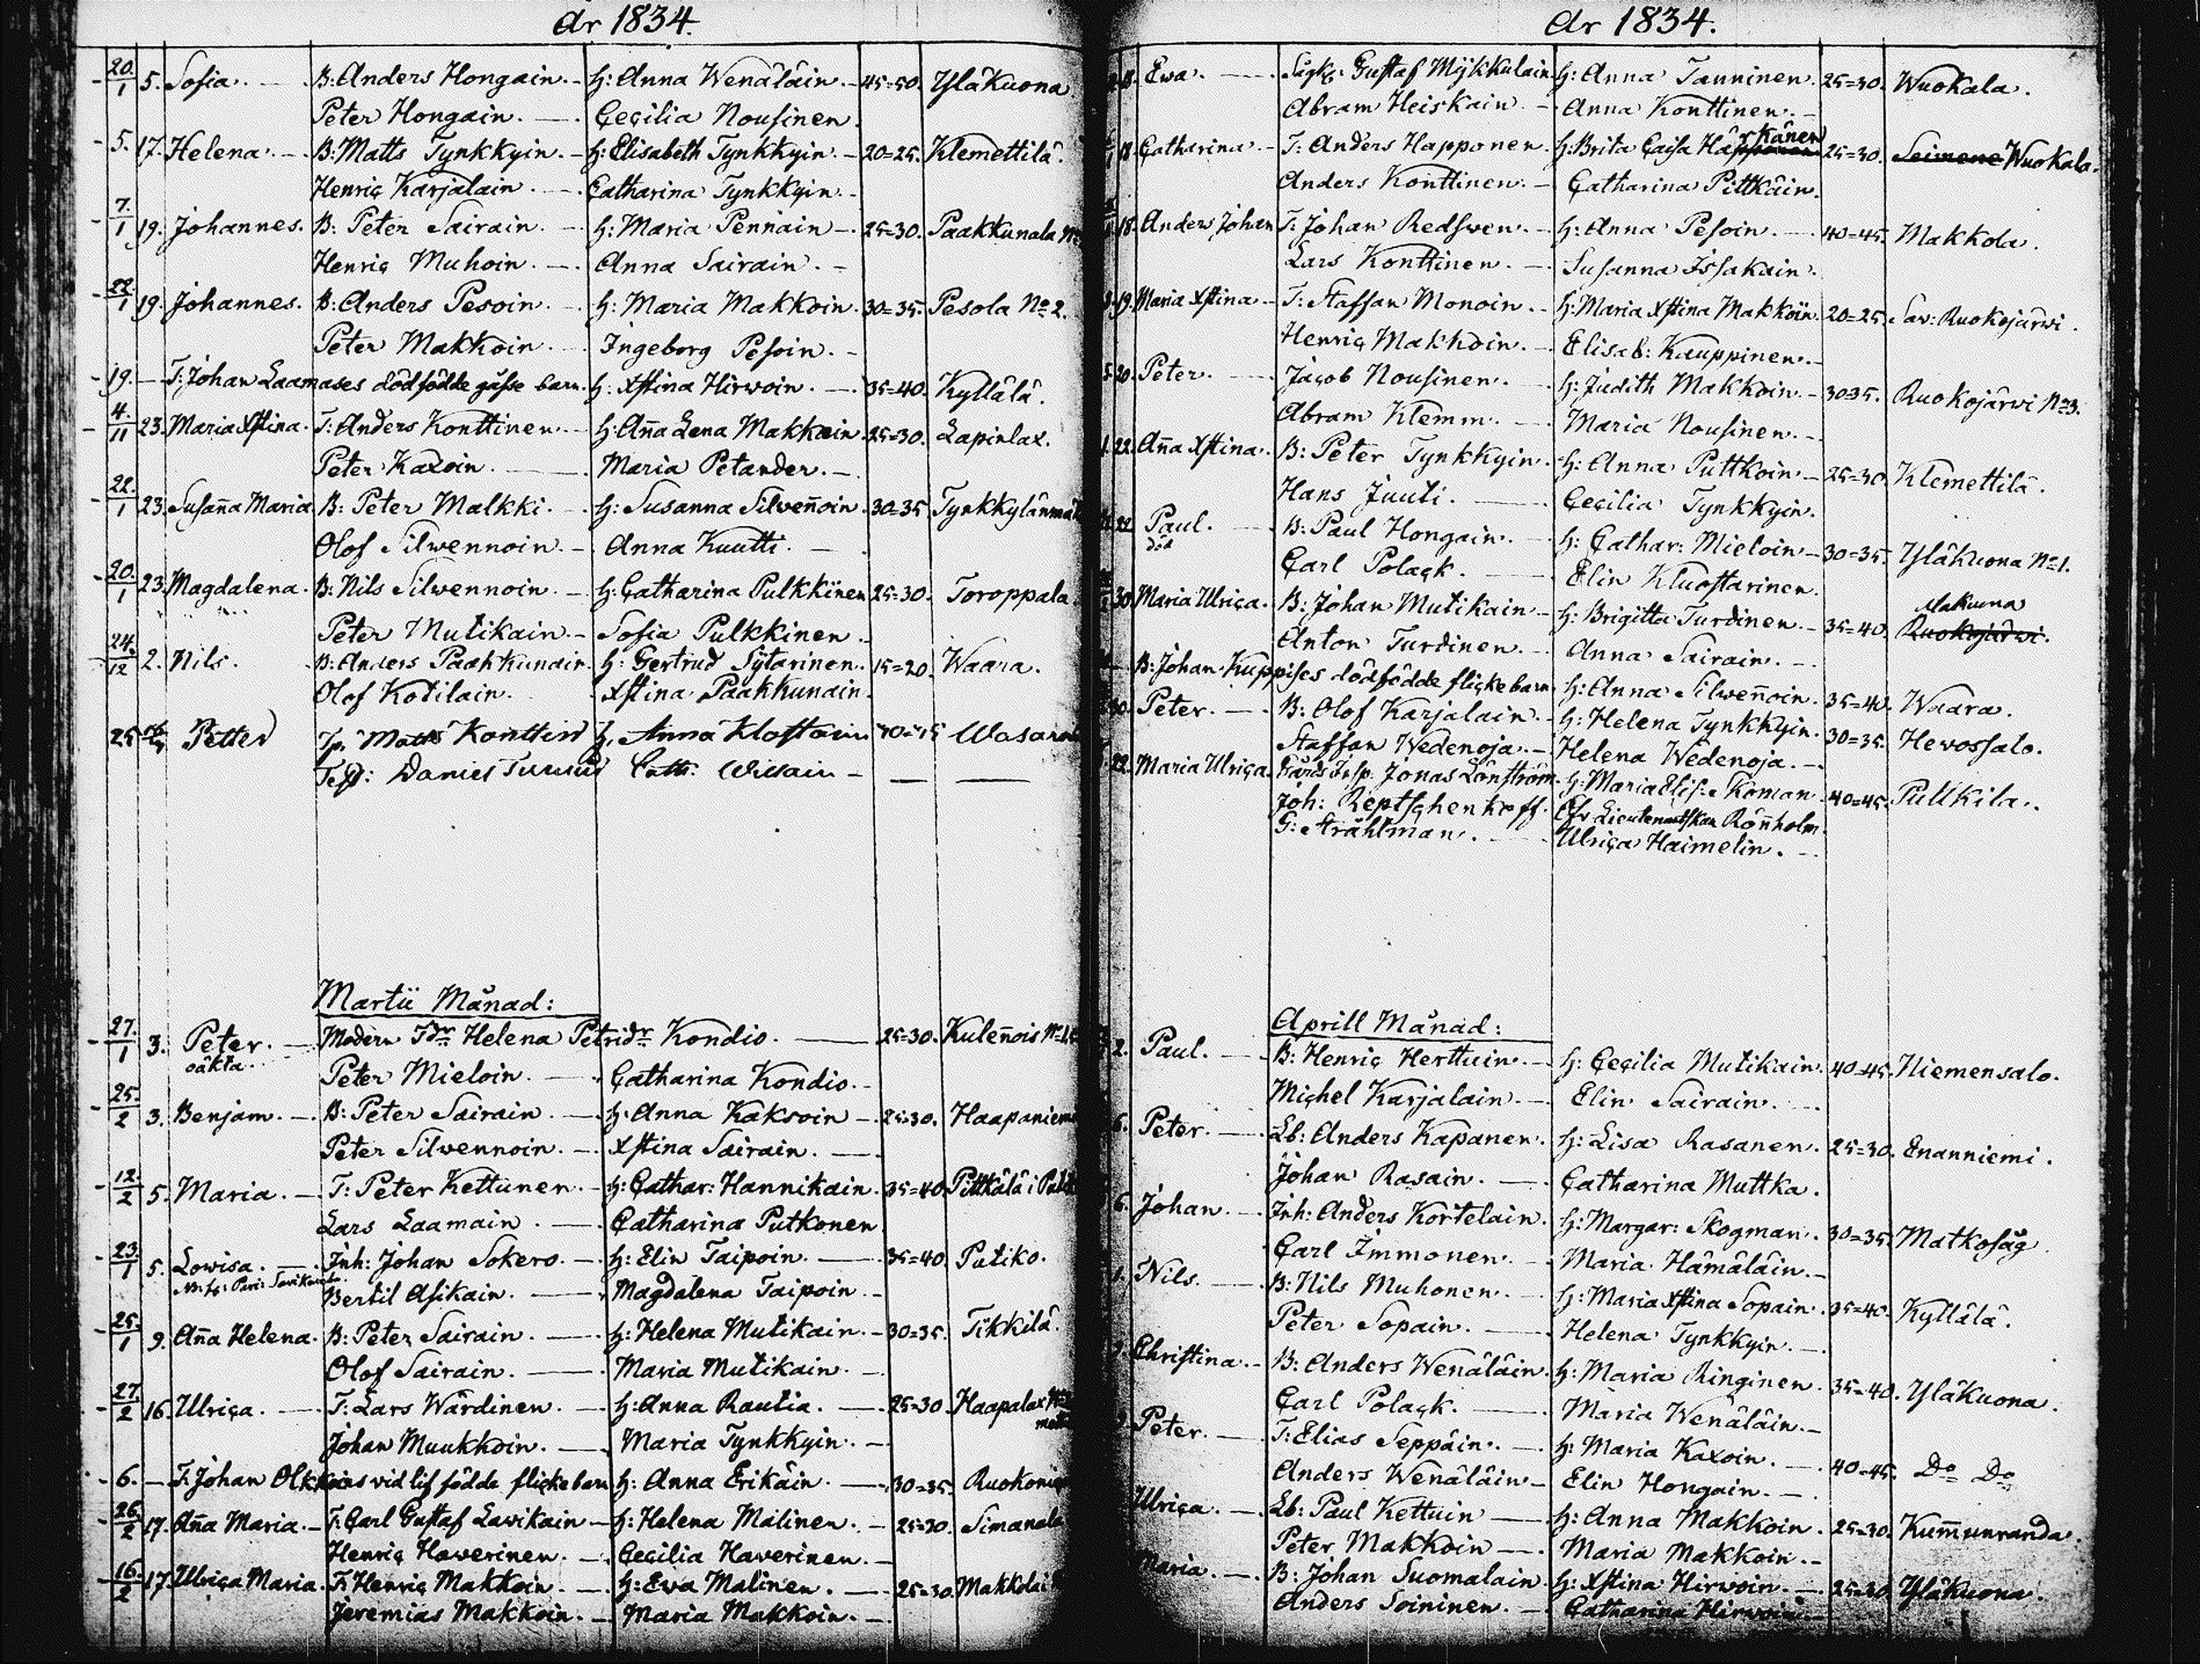 År 1834.
20/1 5. Sofia. B: Anders Hongain. H: Anna Wenäläin. 45=50. Yläkuona.
Peter Hongain. Cecilia Nousinen.
5. 17. Helena. B: Matts Tynkkyin. H: Elisabeth Tynkkyin. 20=25. Klemettilä.
Henric Karjalain. Catharina Tynkkyin.
7/1 19. Johannes. B: Peter Sairain. H: Maria Pennain 25=30. Paakkunala
Henric Muhoin. Anna Sairain.
22/1 19. Johannes. B: Anders Pesoin. H: Maria Makkoin. 30=35. Pesola No 2.
Peter Makkoin. Ingeborg Pesoin.
19. T: Johan Laamases dödfödde gåsse barn. H: Xstina Hirwoin. 35=40. Kyllälä.
4/11 23. Maria Xstina. T: Anders Konttinen. H: Anna Lena Makkoin. 25=30. Lapinlax.
Peter Kaxoin. Maria Petander.
22/1 23. Susanna Maria B: Peter Malkki. H: Susanna Silwennoin. 30=35. Tynkkylänmä
Olof Silwennoin. Anna Kuutti.
20/1 23. Magdalena. B: Nils Silwennoin. H: Catharina Pulkkinen 25=30. Toroppala
Peter Mutikain. Sofia Pulkkinen.
24/12 2. Nils. B: Anders Paakkunain. H: Gertrud Sytarinen. 15=20. Waara.
Olof Kotilain. Xstina Paakkunain.
25 Petter Matts Konttin H. Anna Klostain 40=45 Wasara
Test: Daniel Cath:
Martii Månad:
27/1 3. Peter. Modern Tdr Helena Petridr Kondio. 25=30. Kulennois No 1.
oäkta. Peter Mieloin. Catharina Kondio.
25/2 3. Benjam. B: Peter Sairain. H: Anna Kaksoin 25=30. Haapaniem
Peter Silwennoin. Xstina Sairain.
12/2 5. Maria. T: Peter Kettunen. H: Cathar: Hannikain. 35=40. Pittkälä i
Lars Laamain. Catharina Putkonen
23/1 5. Lowisa. Inh: Johan Sokero. H: Elin Taipoin. 35=40 Putiko.
Bertil Asikain. Magdalena Taipoin
25/1 9. Anna Helena. B: Peter Sairain. H: Helena Mutikain. 30=35. Tikkilä.
Olof Sairain. Maria Mutikain.
27/2 16. Ulrica. T: Lars Wärdinen. H: Anna Rautia. 25=30. Haapala
Johan Muukkoin. Maria Tynkkyin.
6. T: Johan Olkkoins vid lif födde flicke barn H: Anna Erikäin. 30=35. Ruokoni
26/2 17. Anna Maria. T: Carl Gustaf Lavikain H: Helena Malinen. 25=30. Simanala
Henric Haverinen. Cecilia Haverinen.
16/2 17. Ulrica Maria. T: Henric Makkoin. H: Eva Malinen. 25=30. Makkola
Jeremias Makkoin. Maria Makkoin.
År 1834.
18. Ewa. Gustaf Mykkulain. H: Anna Tanninen. 25=30. Wuokala.
Abram Heiskain. Anna Konttinen.
18. Catharina. T: Anders Happonen. H: Brita Caisa Härkänen 25=30. Seimene Wuokala.
Anders Konttinen. Catharina Pittkäin.
18. Anders Johan T: Johan Redswen. H: Anna Pesoin. 40=45. Makkola.
Lars Konttinen. Susanna Issakain.
19. Maria Xstina T: Staffan Monoin. H: Maria Xstina Makkoin. 20=25. Sav: Ruokojärwi.
Henric Makkoin. Elisab: Kauppinen.
20. Peter. Jacob Nousinen. H: Judith Makkoin. 30=35. Ruokojärwi No 3.
Abram Klemm. Maria Nousinen.
22. Anna Xstina. B: Peter Tynkkyin. H: Anna Puttkoin 25=30. Klemettilä.
Hans Juuti. Cecilia Tynkkyin.
22 Paul. B: Paul Hongain. H: Cathar: Mieloin 30=35. Yläkuona No 1.
död Carl Polack. Elin Kluostarinen.
30. Maria Ulrica. B: Johan Mutikain H: Brigitta Turdinen. 35=40. Alakuona Ruokojärwi.
Anton Turdinen. Anna Sairain.
B: Johan Kuppises dödfödde flicke barn H: Anna Silwennoin. 35=40. Waara.
30. Peter. B: Olof Karjalain. H: Helena Tynkkyin. 30=35. Hevossalo.
Staffan Wedenoja. Helena Wedenoja.
22. Maria Ulrica. Gårds Insp. Jonas Lönström. H: Maria Elis: Skoman 40=45. Pullkila.
Joh: Reptschenkoff. Lieutenantskan Rönnholm.
G: Stråhlman. Ulrica Haimelin.
Aprill Månad:
2. Paul. B: Henric Herttuin. H: Cecilia Mutikain 40=45. Niemensalo.
Michel Karjalain. Elin Sairain.
6. Peter. Lb: Anders Kapanen. H: Lisa Rasanen. 25=30. Enanniemi.
Johan Rasain. Catharina Muttka.
6. Johan. Inh: Anders Kortelain. H: Margar: Skogman. 30=35. Matkosåg
Carl Immonen. Maria Hämäläin.
Nils. B: Nils Muhonen. H: Maria Xstina Sopain. 35=40. Kyllälä.
Peter Sopain. Helena Tynkkyin.
Christina. B: Anders Wenäläin H: Maria Ringinen. 35=40. Yläkuona.
Carl Polack. Maria Wenäläin.
Peter. T: Elias Seppäin. H: Maria Kaxoin. 40=45. Do Do
Anders Wenäläin Elin Hongain.
Ulrica. Lb: Paul Kettuin H: Anna Makkoin. 25=30. Kummunranda.
Peter Makkoin Maria Makkoin.
Maria. B: Johan Suomalain H: Xstina Hirwoin. 25=30 Yläkuona.
Anders Soininen. Catharina Hirwoin.